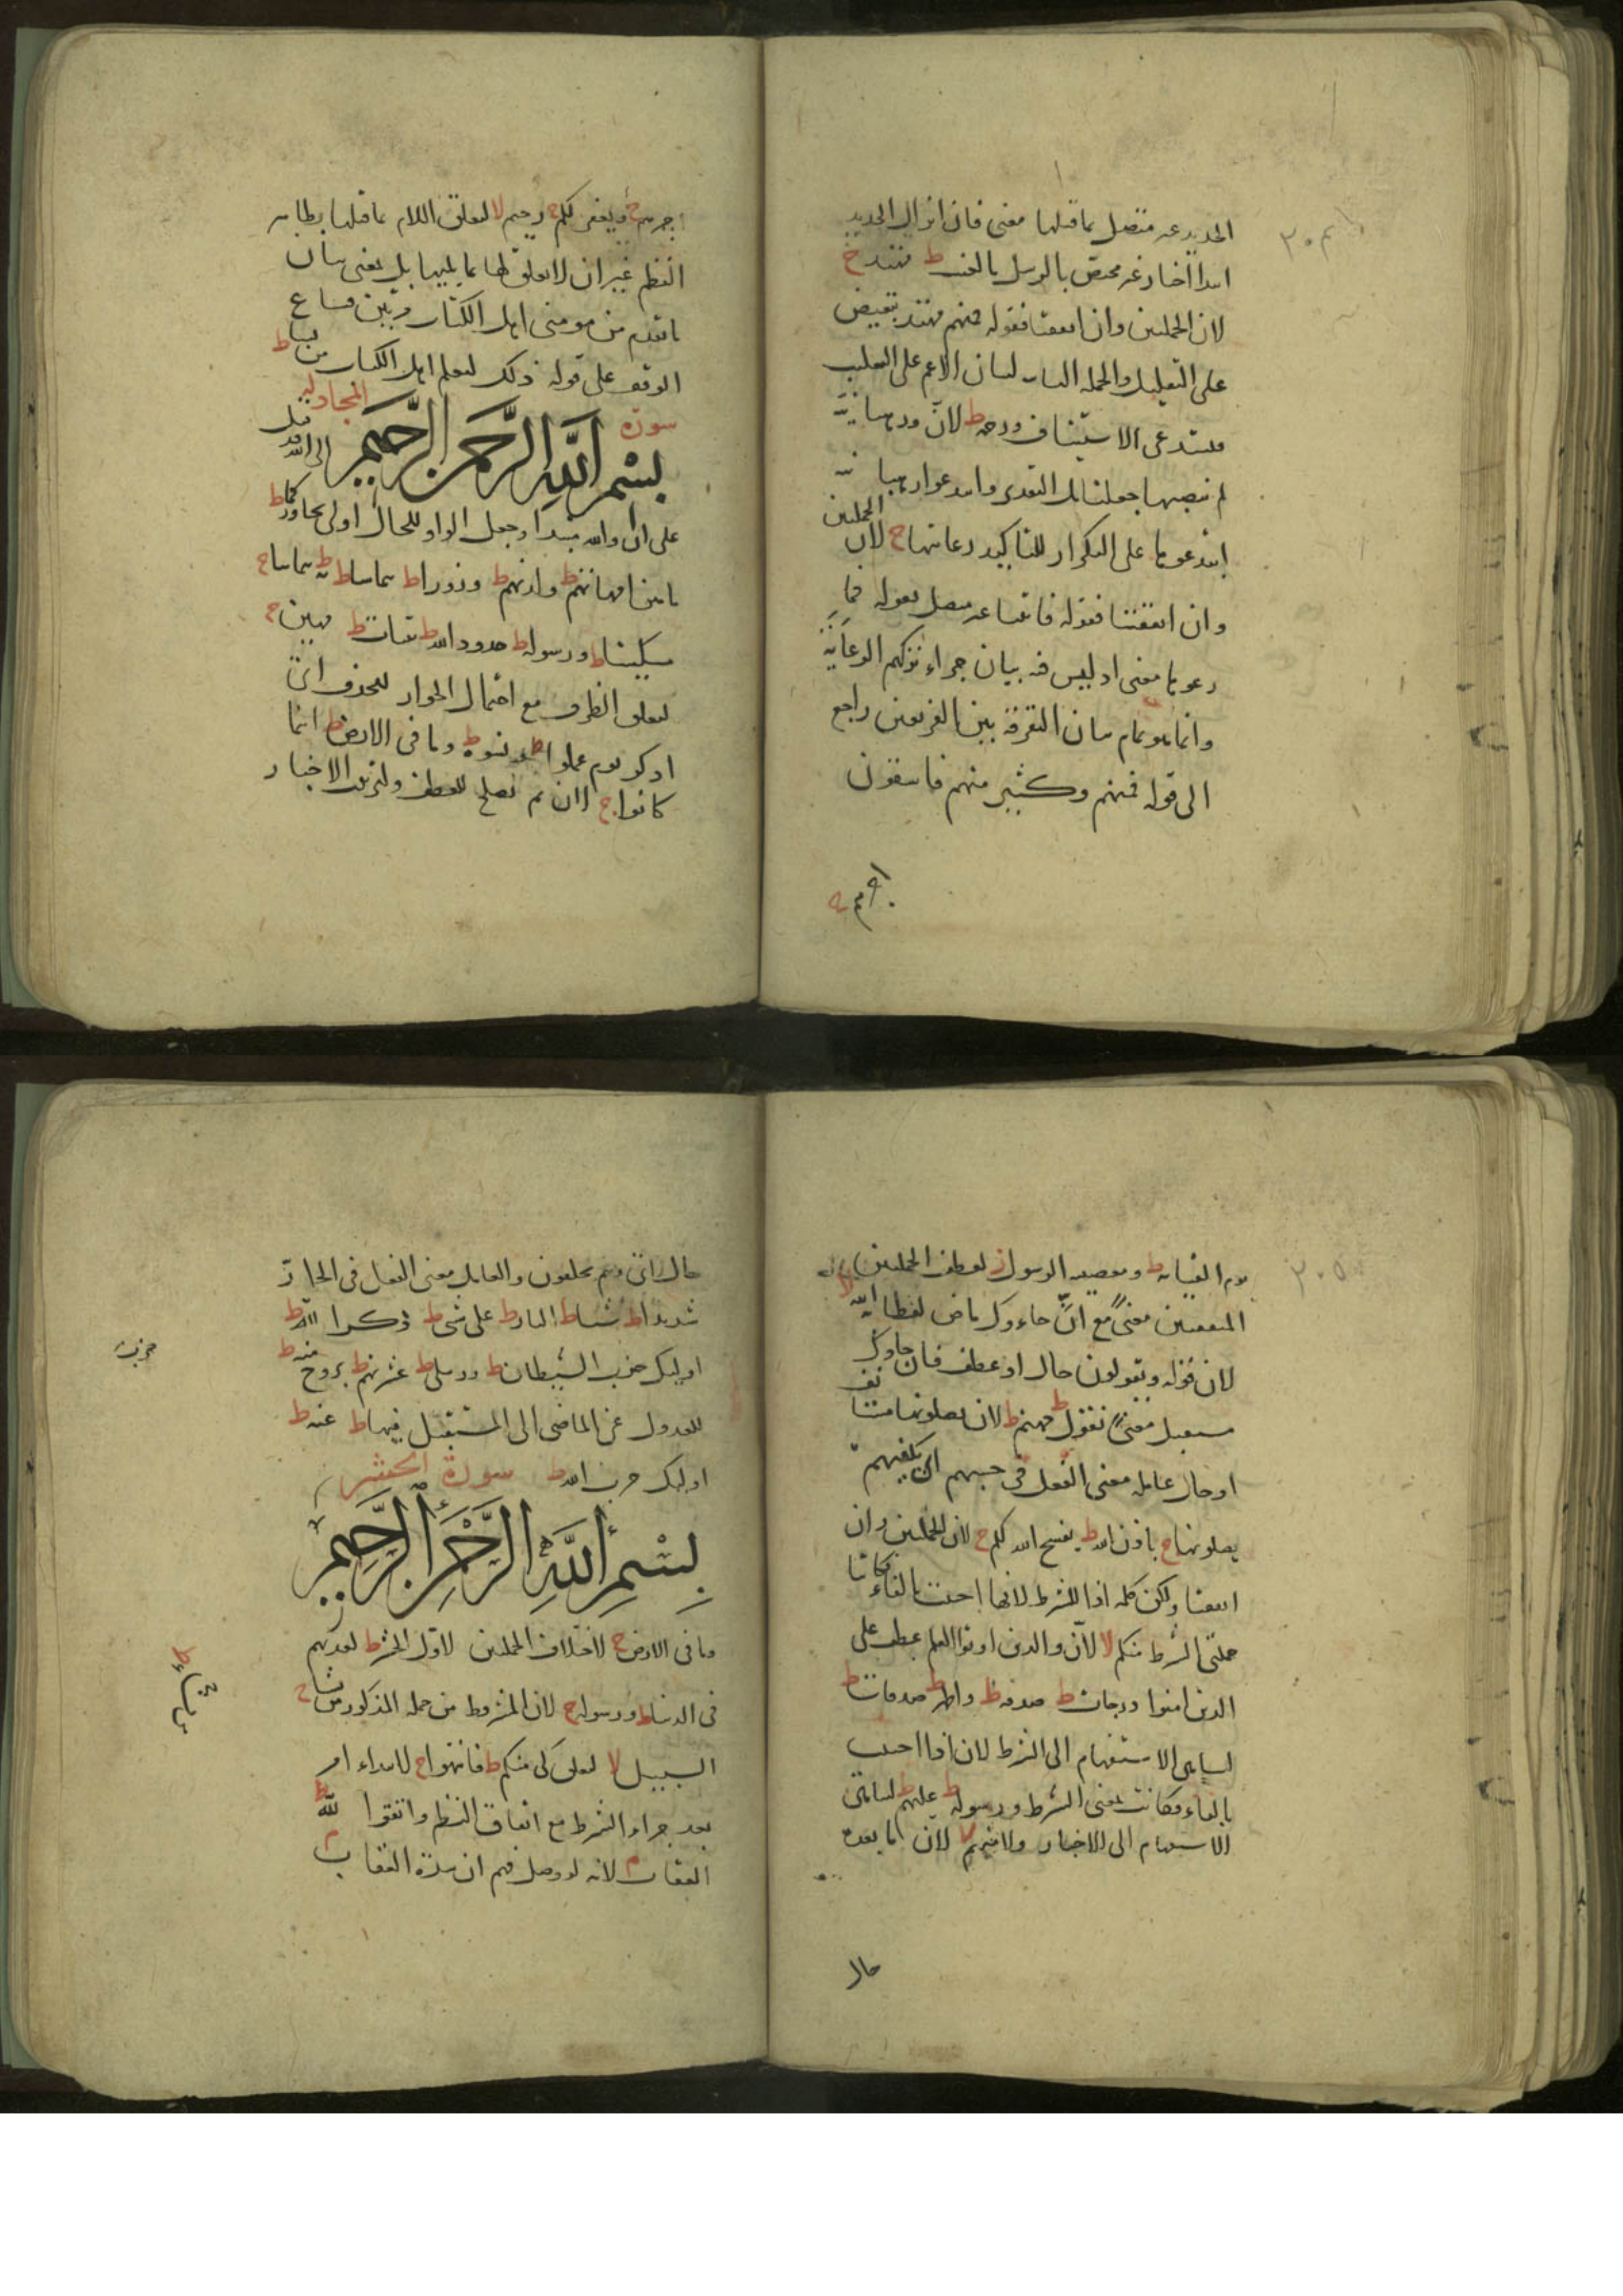 الحديد غير متصل بما قبلها معنى فان انزال الحديد
ابتدا اخبار غير مختص بالرسل بالغيب ط مهتد ج
لان الجملتين وان اتفقتا فقوله فمنهم مهتد بتبعيض
على التقليل والجمله الثانيه لبيان الاعم على التغليب
لان ورهبانية
لم نصبها جعلنا بل التقدير وابتدعوا رهبانية
ابتدعوها على التكرار للتاكيد رعايتها ج لان الجملتين
وان اتفقتا فقوله فاتينا غير متصل بقوله فما
رعوها معنى اذ ليس فيه بيان جزاء تركهم الرعاية
وانما هو تمام بيان التفرقة بين الفريقين راجع
الى قوله فمنهم وكثير منهم فاسقون
اجرهم ج
اجرهم ج ويغفر لكم ج رحيم لا لتعلق اللام بما قبلها بظاهر
النظم غير ان لا تعلق لها بما يليها بل بمعنى بيان
ما تقدم من مومنى اهل الكتاب
الوقف على قوله ذلك ليعلم اهل الكتاب من يشا ط
سورة المجادلة
بسم الله الرحمن الرحيم
الى الله قد قيل
على ان والله مبتدا وجعل الواو للحال اولى تحاوركما ط
ما هن امهاتهم ط ولدنهم ط وزورا ط يتماسا ط به ط يتماسا ج
مسكينا ط ورسوله ط حدود الله ط بينات ط مهين ج
لتعلق الظرف مع احتمال الجواز للحذف اى
اذكر يوم عملوا ط ونسوه ط وما فى الارض ط اينما
كانوا ج لان ثم تصلح للعطف ولترتيب الاخبار
يوم القيامه ط ومعصيه الرسول ز لعطف الجملتين
المتفقتين معنى مع ان جاءوك ماض لفظا به الله لا
لان قوله ويقولون حال او عطف فان جاوك
مستقبل معنى نقول ط جهنم ط لان يصلونها مستانف
او حال عامله معنى الفعل فى حسبهم اى يكفيهم
يصلونها ج باذن الله ط يفسح الله لكم ج لان الجملتين وان
اتفقتا ولكن كلمه اذا للشرط لانها اجيبت بالفاء فكانتا
جملتى الشرط منكم لا لان والذين اوتوا العلم عطف على
الذين امنوا درجات ط صدقه ط واطهر ط صدقات ط
لتناهى الاستفهام الى الشرط لان اذا اجيب
بالفاء فكانت بمعنى الشرط ورسوله ط عليهم ط لتناهى
الاستفهام الى الاخبار ولا منهم لا لان ما بعده
حال
حال اى وهم يحلفون والعامل معنى الفعل فى الجار
شديدا ط شيئا ط النار ط على شى ط ذكر الله ط
اوليك حزب الشيطان ط ورسلى ط عشيرتهم ط بروح منه ط
للعدول عن الماضى الى المستقبل فيها ط عنه ط
اوليك حزب الله ط سورة الحشر
بسم الله الرحمن الرحيم
وما فى الارض ج لاختلاف الجملتين لاول الحشر ط لعذبهم
فى الدنيا ط ورسوله ج لان المشروط من جمله المذكور من يشا ط
السبيل لا لتعلق كى منكم ط فانتهوا ج لابتداء امر
بعد جزاء الشرط مع اتفاق النظم واتقوا الله ط
العقاب م لانه لو وصل فهم ان شدة العقاب
حزب
٣٠٥